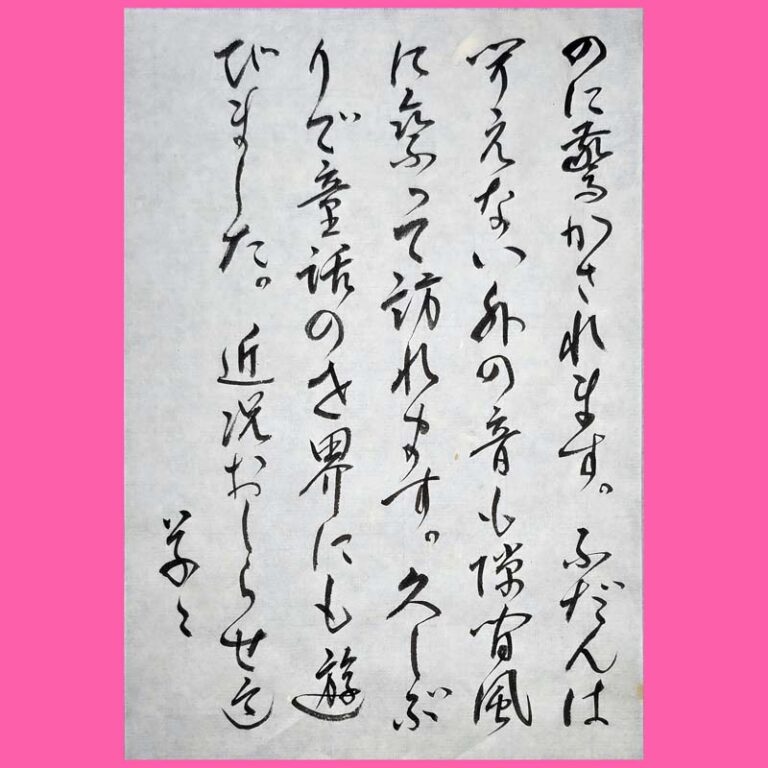 のに驚かされます。ふだんは
聞えない外の音も隙間風
に乗って訪れます。久しぶ
りで童話の世界にも遊
びました。近況おしらせ迄
草々